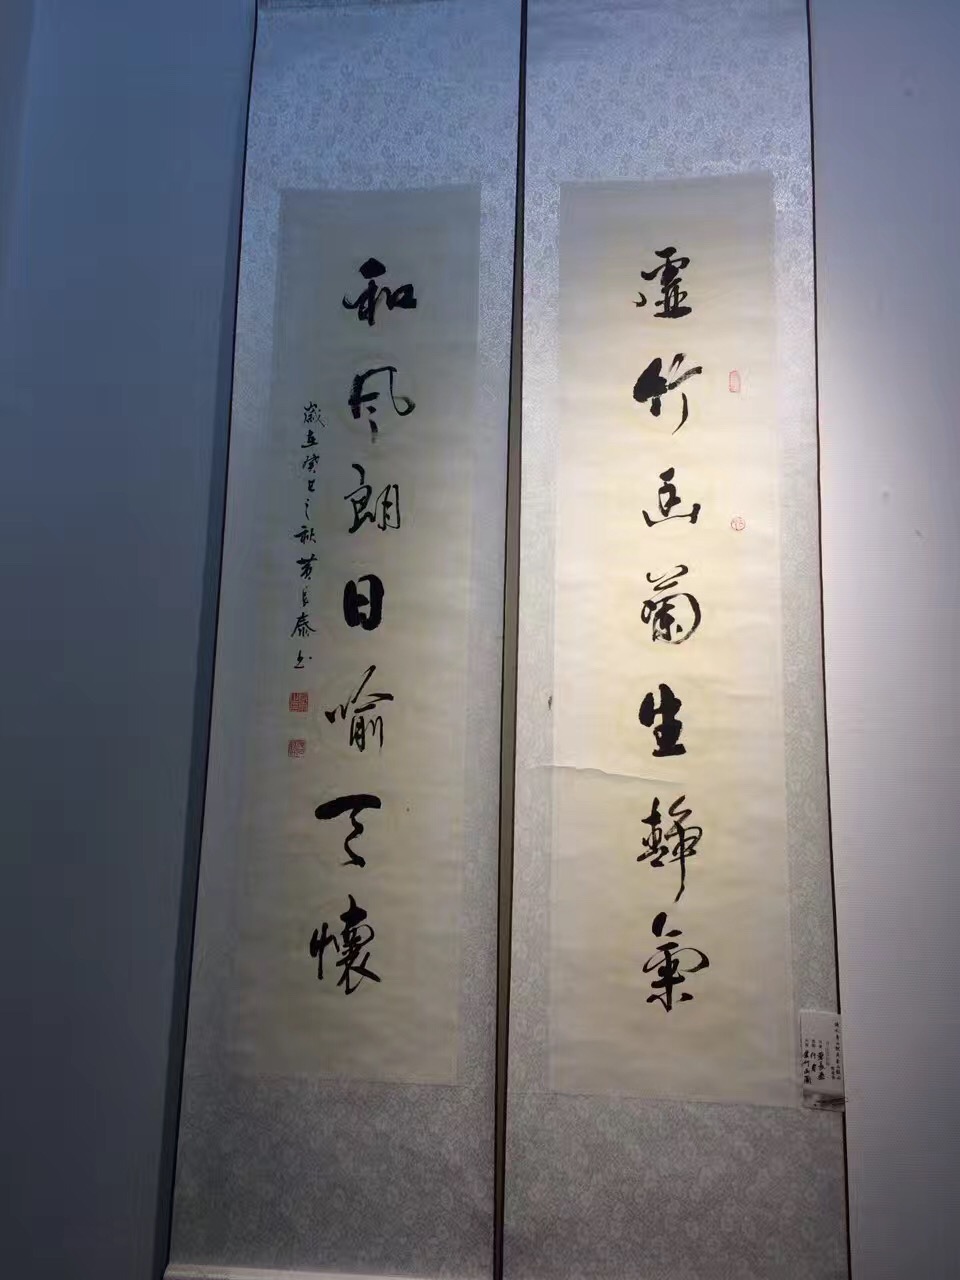 虛竹幽蘭生靜氣
和風朗日喻天懷
歲在癸巳之秋黃長泰書